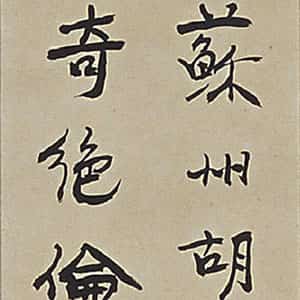 蘇州胡
奇絶倫